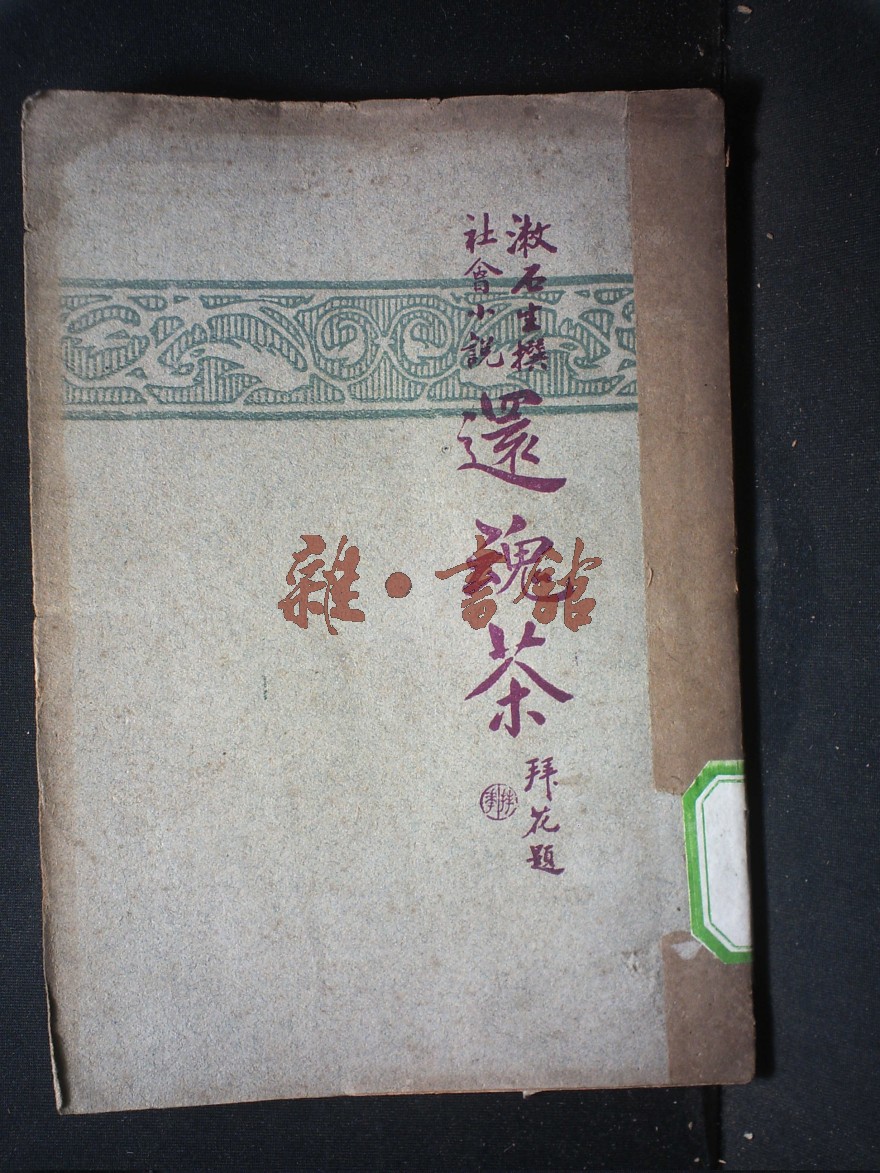 漱石生撰
社會小說
還魂茶
拜花題
雜·書館